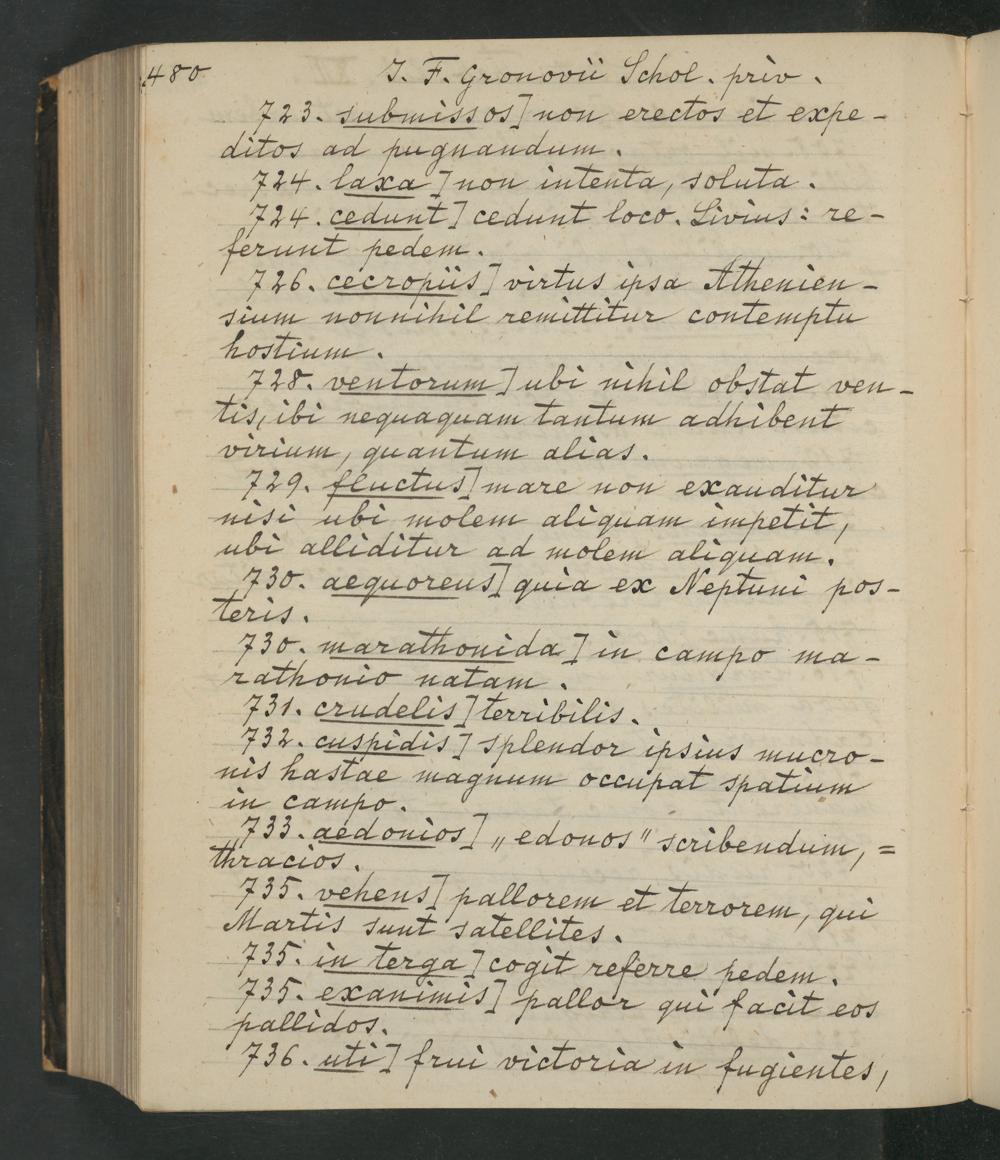 480 J. F. Gronovii Schol. priv.
723. submissos] non erectos et expe-
ditos ad pugnandum.
724. laxa] non intenta, soluta.
724. cedunt] cedunt loco. Livius: re-
ferunt pedem.
726. cecropiis] virtus ipsa Athenien-
sium nonnihil remittitur contemptu
hostium.
728. ventorum] ubi nihil obstat ven-
tis, ibi nequaquam tantum adhibent
virium, quantum alias.
729. fluctus] mare non exauditur
nisi ubi molem aliquam impetit,
ubi alliditur ad molem aliquam.
730. aequoreus] quia ex Neptuni pos-
teris.
730. marathonida] in campo ma-
rathonio natam.
731. crudelis] terribilis.
732. cuspidis] splendor ipsius mucro-
nis hastae magnum occupat spatium
in campo.
733. aedonios] „edonos" scribendum, =
thracios.
735. vehens] pallorem et terrorem, qui
Martis sunt satellites.
735. in terga] cogit referre pedem.
735. exanimis] pallor qui facit eos
pallidos.
736. uti] frui victoria in fugientes,